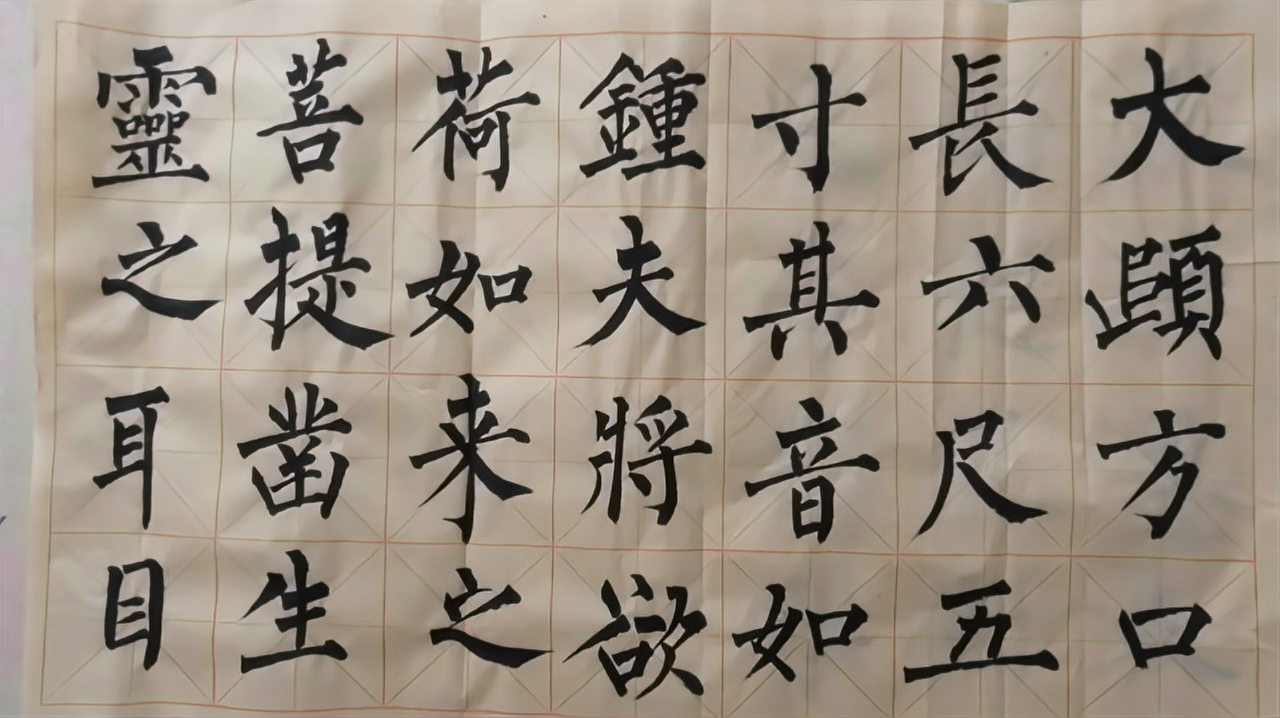 大頤方口
長六尺五
寸其音如
鍾夫將欲
荷如来之
菩提鑿生
靈之耳目